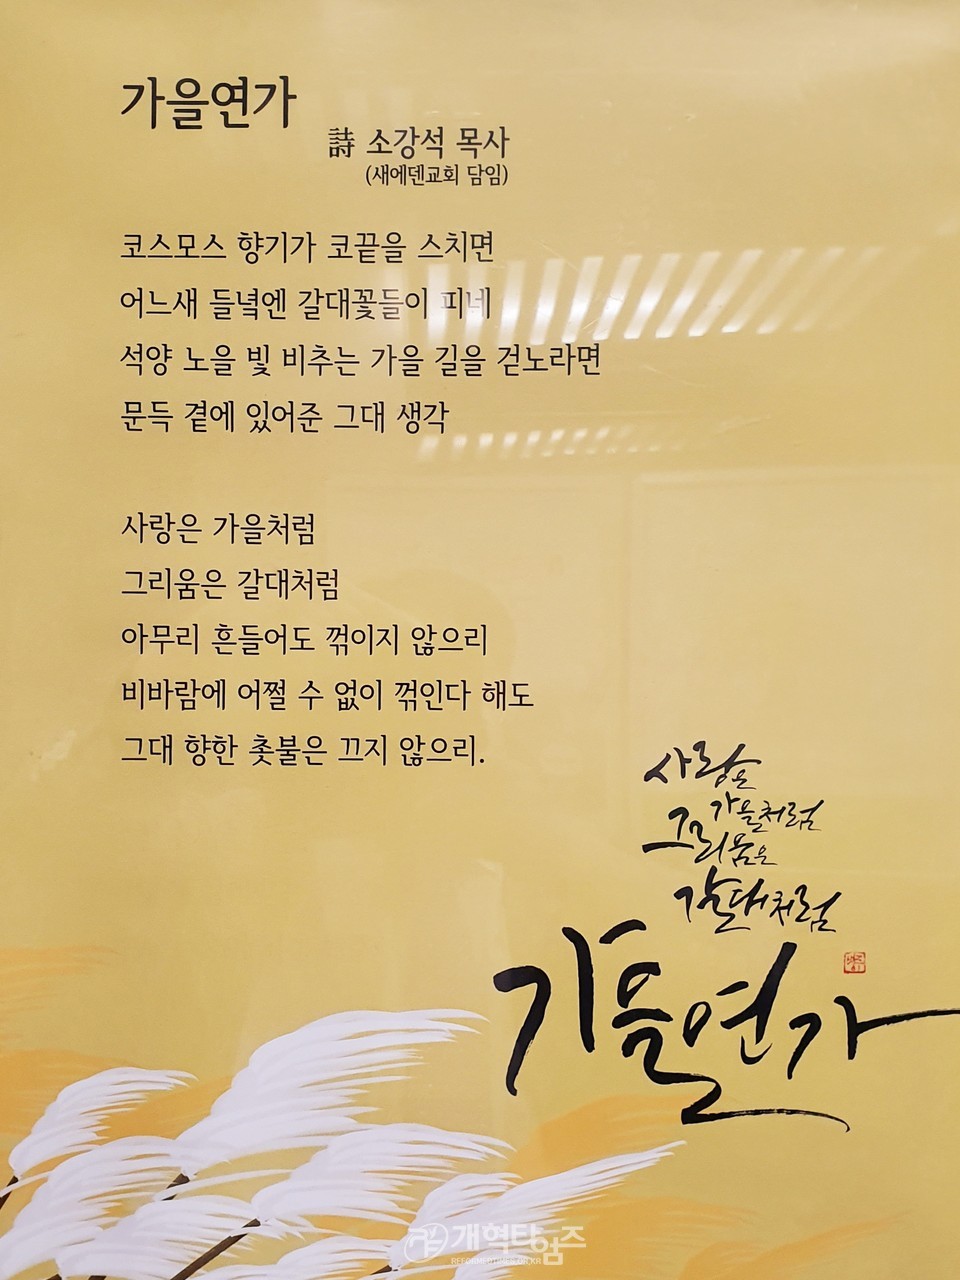 가을연가
詩 소강석 목사
(새에덴교회 담임)
코스모스 향기가 코끝을 스치면
어느새 들녘엔 갈대꽃들이 피네
석양 노을 빛 비추는 가을 길을 걷노라면
문득 곁에 있어준 그대 생각
사랑은 가을처럼
그리움은 갈대처럼
아무리 흔들어도 꺾이지 않으리
비바람에 어쩔 수 없이 꺾인다 해도
그대 향한 촛불은 끄지 않으리.
사랑은
가을처럼
그리움은
갈대처럼
가을연가
개혁타임즈